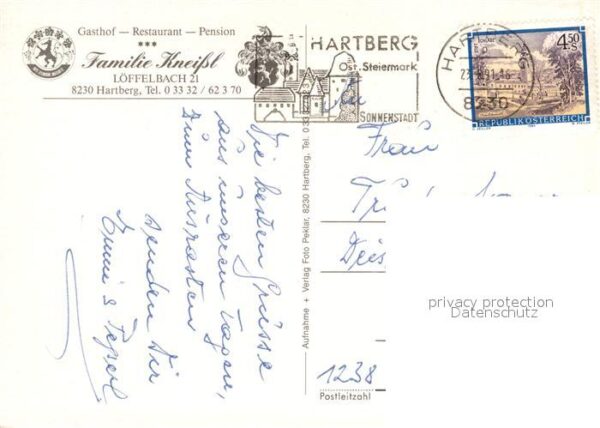 Gasthof — Restaurant — Pension
★★★
Familie Kneißl
LÖFFELBACH 21
8230 Hartberg, Tel. 0 33 32 / 62 3 70
HARTBERG
Ost. Steiermark
SONNENSTADT
8230
4.50
REPUBLIK ÖSTERREICH
Die besten Grüsse
aus unseren Tagen,
zum Ausrasten
senden Dir
Aufnahme + Verlag Foto Peklar, 8230 Hartberg, Tel. 0 33
An
Frau
1238
Postleitzahl
privacy protection
Datenschutz